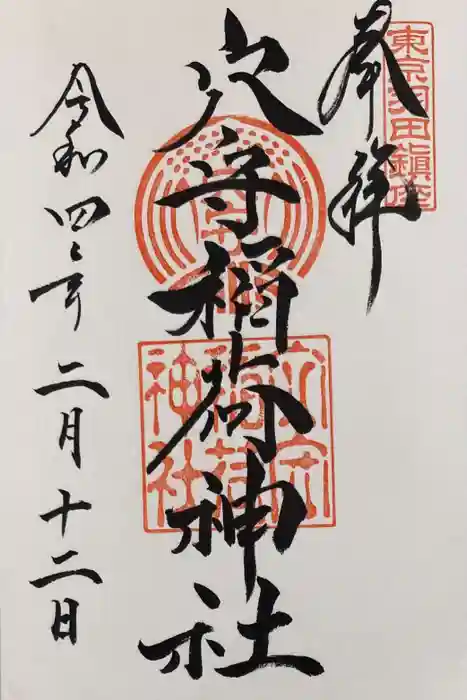 東京羽田鎮座
奉拝
穴守稲荷神社
穴守稲荷神社
令和四年二月十二日